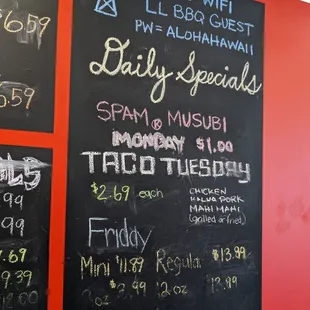 $6.59
6.59
WIFI
LL BBQ GUEST
PW = ALOHAHAWAII
Daily Specials
SPAM® MUSUBI
MONDAY $1.00
TACO TUESDAY
$2.69 each
CHICKEN
KALUA PORK
MAHI MAHI
(grilled or fried)
Friday
Mini $11.89 Regular $13.99
2oz 2oz 13.99